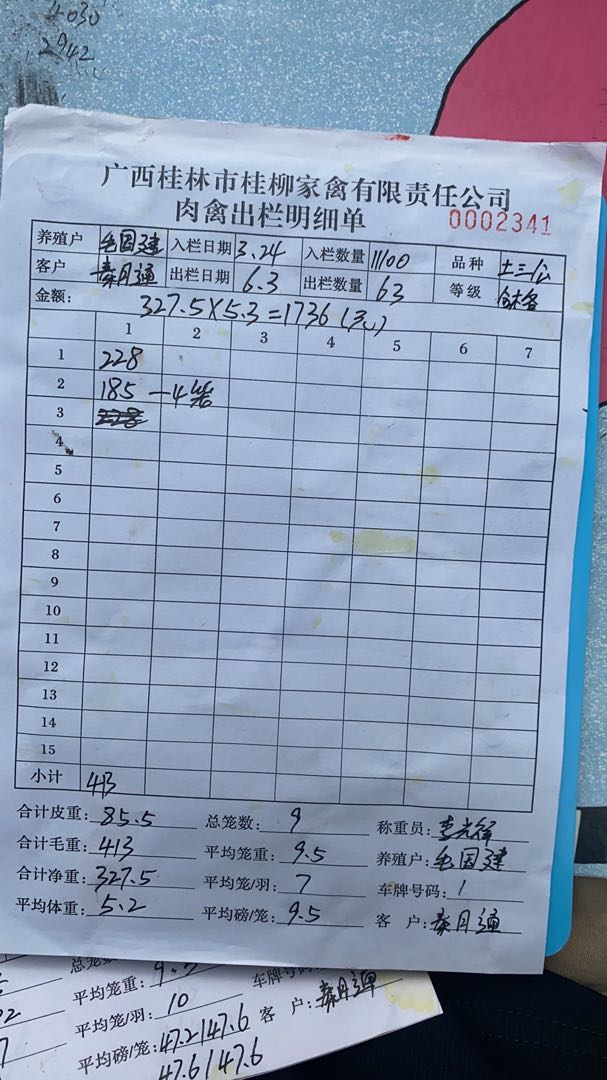 4030
2942
广西桂林市桂柳家禽有限责任公司
肉禽出栏明细单 0002341
养殖户 毛国建 入栏日期 3.24 入栏数量 11100 品种 土三公
客户 秦月通 出栏日期 6.3 出栏数量 63 等级
金额: 327.5×5.3=1736
1 2 3 4 5 6 7
1 228
2 185 —4笼
3 228
4
5
6
7
8
9
10
11
12
13
14
15
小计 413
合计皮重: 85.5 总笼数: 9 称重员:
合计毛重: 413 平均笼重: 9.5 养殖户: 毛国建
合计净重: 327.5 平均笼/羽: 7 车牌号码: 1
平均体重: 5.2 平均磅/笼: 9.5 客 户: 秦月通
总笼数
平均笼重: 车牌号码:
平均笼/羽: 10 客 户: 秦月通
平均磅/笼: 47.2 147.6
47.6 147.6